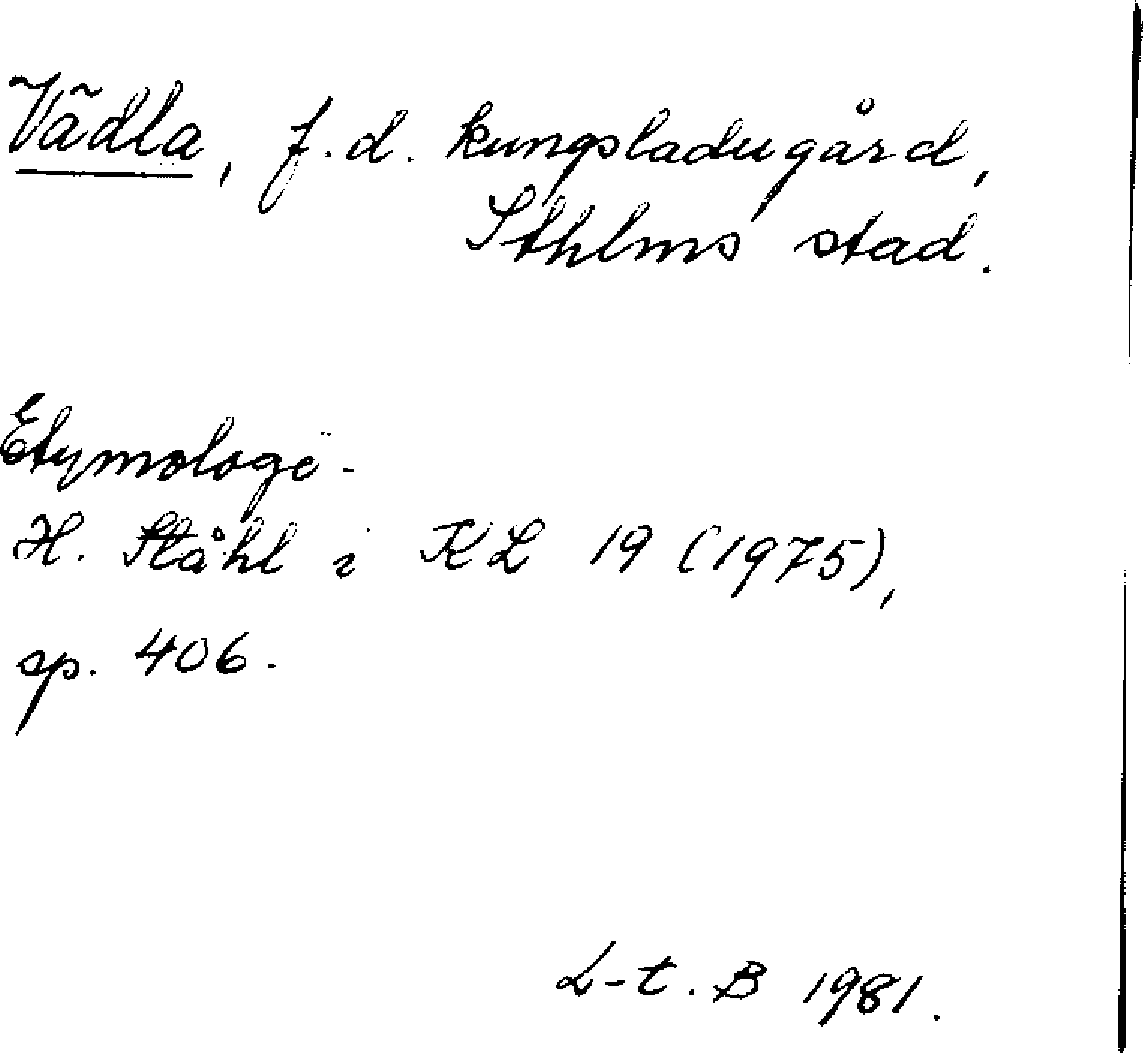 Vädla, f.d. kungsladugård,
Sthlms stad.
Etymologi -
H. Ståhl i KL 19 (1975),
sp. 406.
L-t. B 1981.